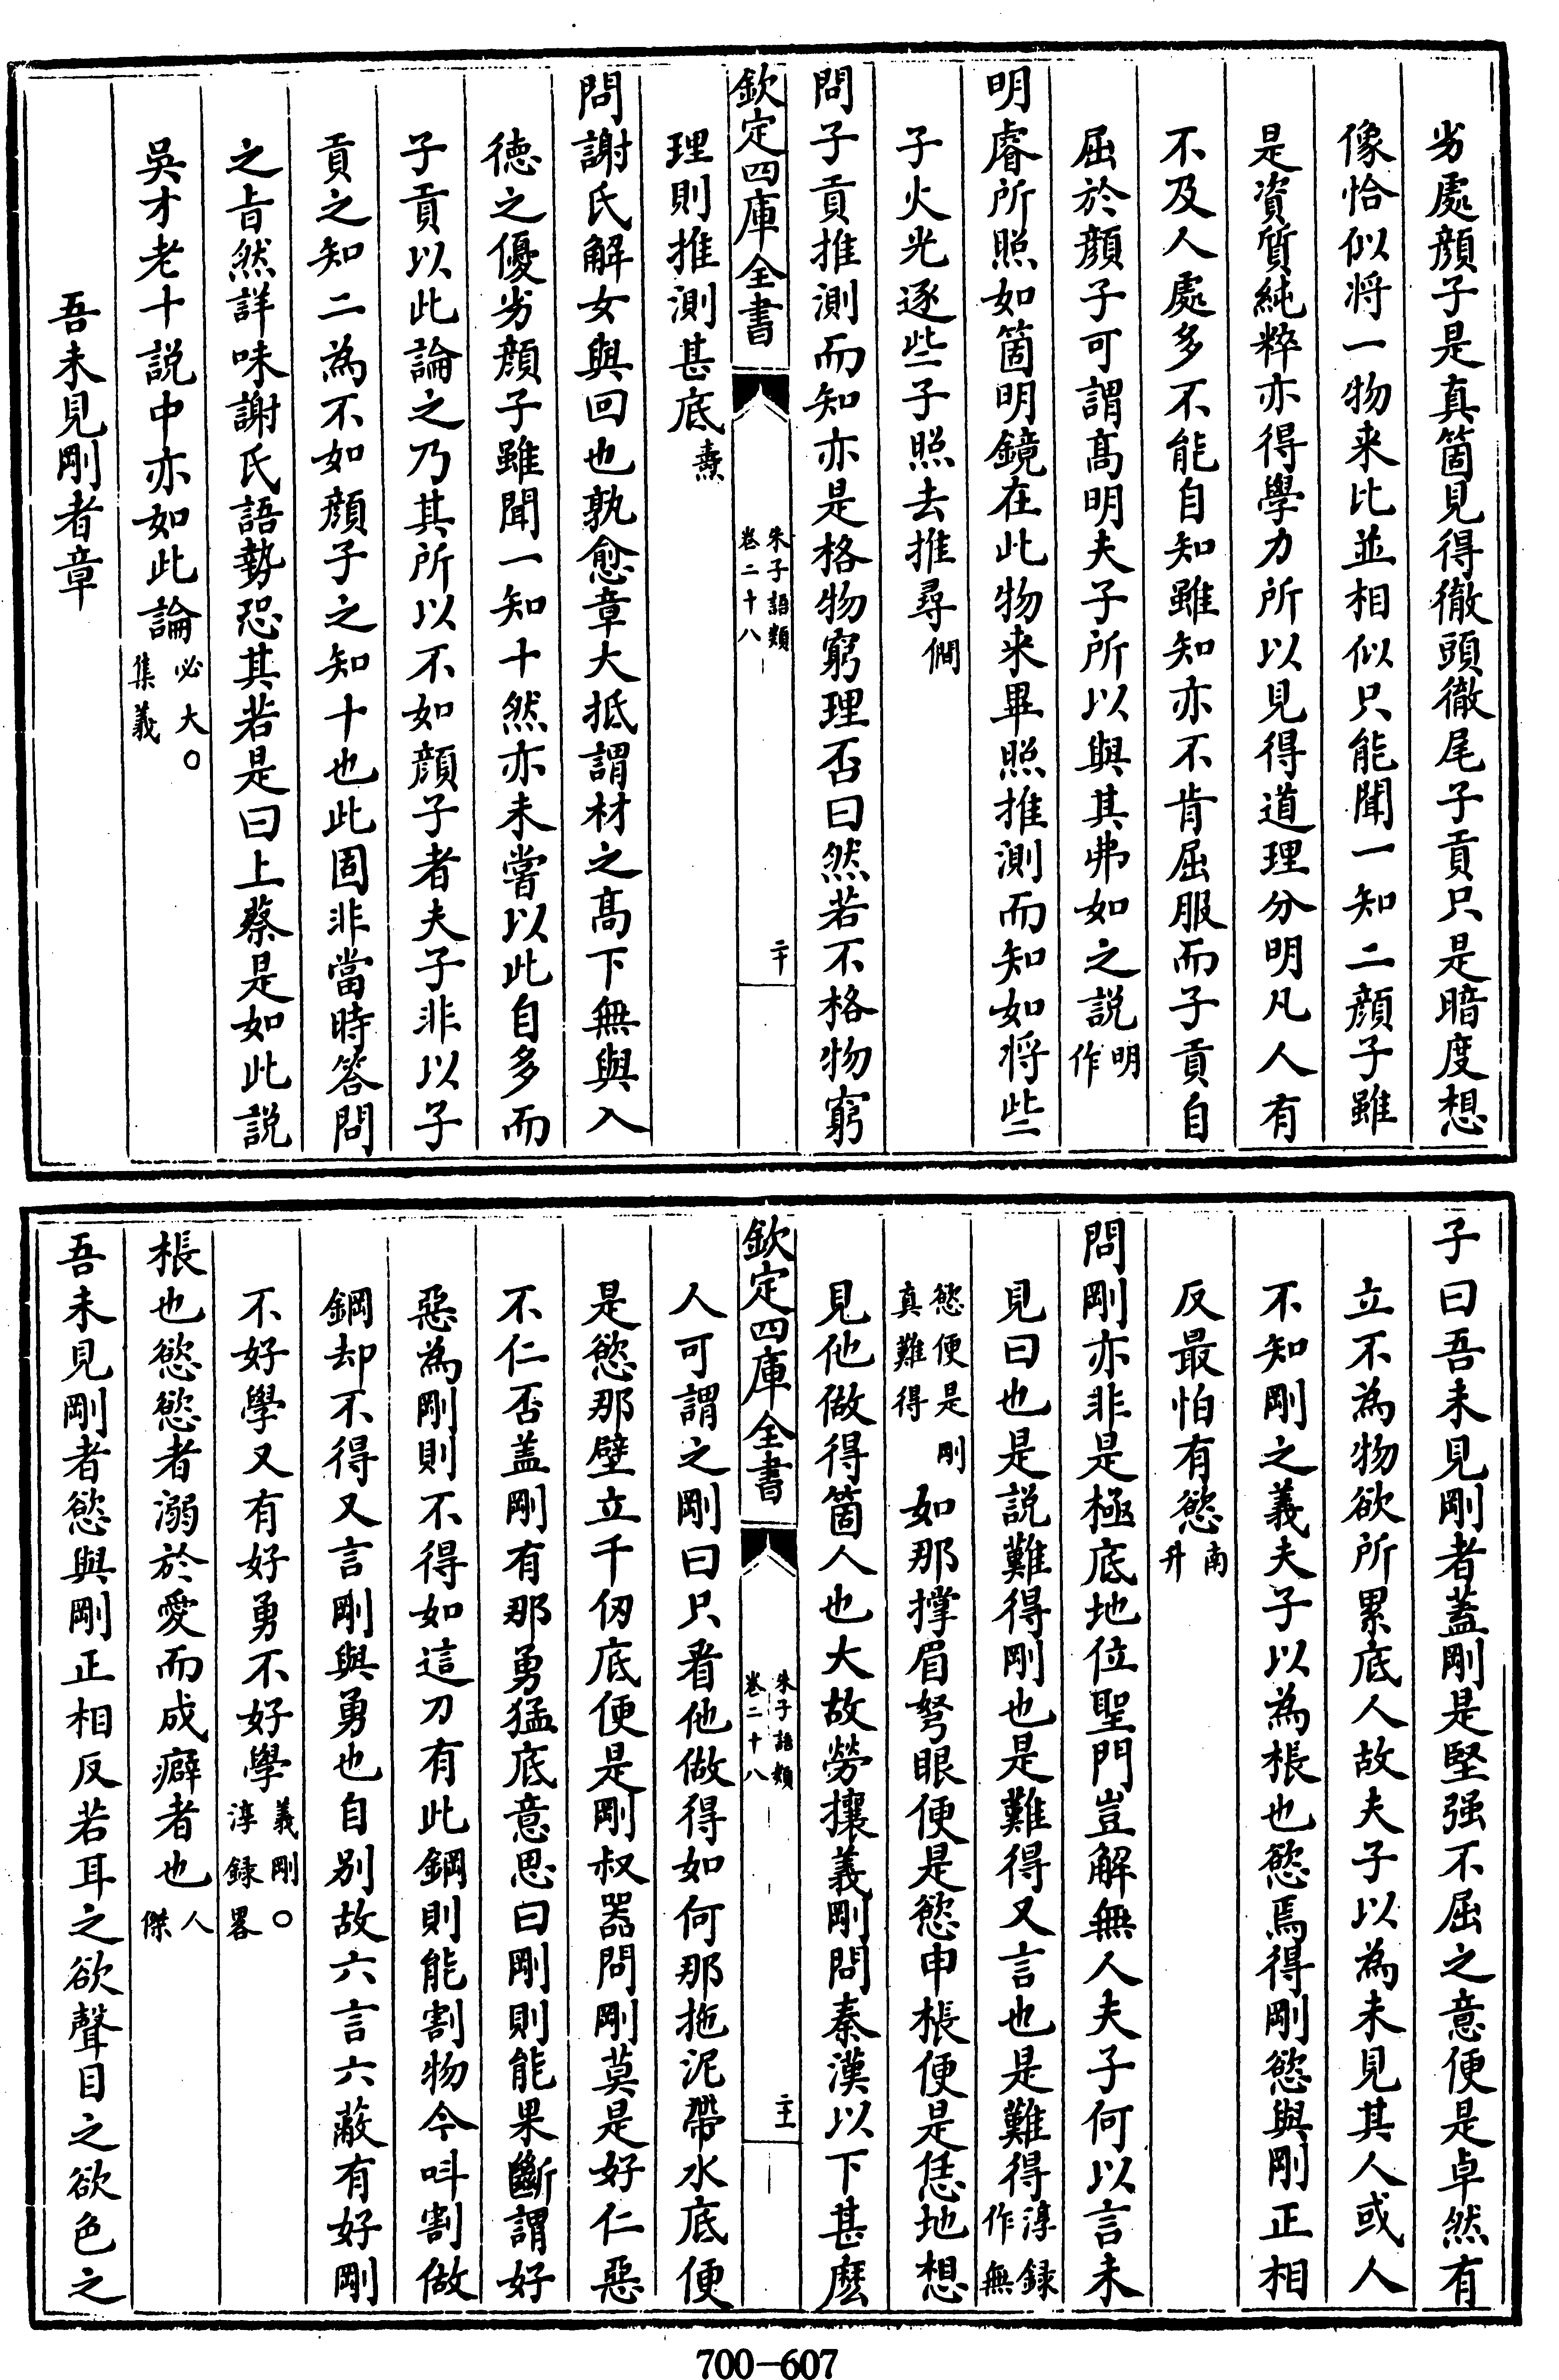 劣處顔子是真箇見得徹頭徹尾子貢只是暗度想
像恰似将一物来比並相似只能聞一知二顔子雖
是資質純粹亦得學力所以見得道理分明凡人有
不及人處多不能自知雖知亦不肯屈服而子貢自
屈於顔子可謂髙明夫子所以與其弗如之説明作
明睿所照如箇明鏡在此物来畢照推測而知如将些
子火光逐些子照去推尋僩
問子貢推測而知亦是格物窮理否曰然若不格物窮
欽定四庫全書
朱子語類
卷二十八
二十
理則推測甚底燾
問謝氏解女與回也孰愈章大抵謂材之髙下無與入
徳之優劣顔子雖聞一知十然亦未嘗以此自多而
子貢以此論之乃其所以不如顔子者夫子非以子
貢之知二為不如顔子之知十也此固非當時答問
之㫖然詳味謝氏語勢恐其若是曰上蔡是如此説
吳才老十説中亦如此論必大○
集義
吾未見剛者章
子曰吾未見剛者蓋剛是堅强不屈之意便是卓然有
立不為物欲所累底人故夫子以為未見其人或人
不知剛之義夫子以為棖也慾焉得剛慾與剛正相
反最怕有慾南升
問剛亦非是極底地位聖門豈解無人夫子何以言未
見曰也是説難得剛也是難得又言也是難得淳録
作無
慾便是剛
真難得
如那撑眉弩眼便是慾申棖便是恁地想
見他做得箇人也大故勞攘義剛問秦漢以下甚麽
欽定四庫全書
朱子語類
卷二十八
二十一
人可謂之剛曰只看他做得如何那拖泥帶水底便
是慾那壁立千仞底便是剛叔器問剛莫是好仁惡
不仁否盖剛有那勇猛底意思曰剛則能果斷謂好
惡為剛則不得如這刀有此鋼則能割物今呌割做
鋼却不得又言剛與勇也自别故六言六蔽有好剛
不好學又有好勇不好學義剛○
淳録畧
棖也慾慾者溺於愛而成癖者也人傑
吾未見剛者慾與剛正相反若耳之欲聲目之欲色之
700-607